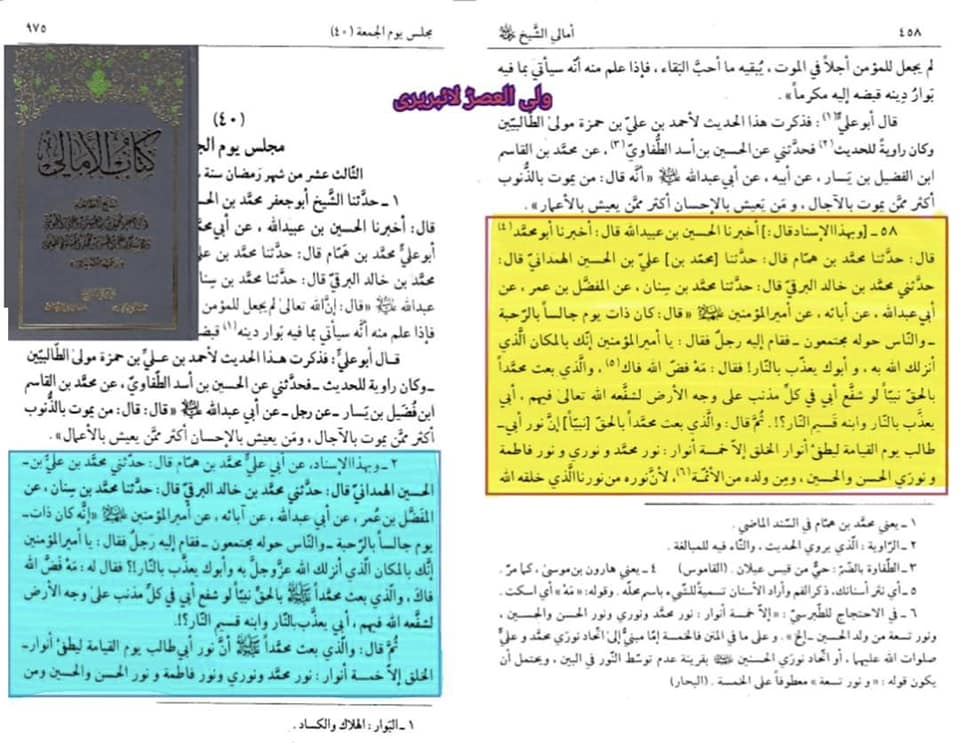 أمالي الشَّيخ ٤٥٨
لم يجعل للمؤمن أجلاً في الموت ، يُبقيه ما أحبَّ البَقاء ، فإذا علم منه أنّه سيأتي بما فيه
بَوارُ دِينه قبضه إليه مكرماً» .
قال أبوعليّ(١) : فذكرت هذا الحديث لأحمد بن عليّ بن حمزة مولى الطّالبيّين
وكان راويةً للحديث(٢) فحدَّثني عن الحسين بن أسد الطُّفاوي(٣) ، عن محمّد بن القاسم
ابن الفضيل بن يَسار ، عن أبيه ، عن أبي عبدالله ﷺ «أنَّه قال : من يموت بالذُّنوب
أكثر ممَّن يموت بالآجال ، و مَن يَعيش بالإحسان أكثر ممَّن يَعيش بالأعمار» .
٥٨ ـ [وبهذا الإسناد قال :] أخبرنا الحسين بن عبيدالله قال : أخبرنا أبومحمّد(٤)
قال : حدَّثنا محمّد بن همّام قال : حدَّثنا [محمّد بن] عليّ بن الحسين الهمدانيّ قال :
حدَّثني محمّد بن خالد البرقيّ قال : حدَّثنا محمّد بن سِنان ، عن المفضّل بن عمر ، عن
أبي عبدالله ، عن آبائه ، عن أميرالمؤمنين «قال : كان ذات يوم جالساً بالرّحبة
ـ والنّاس حوله مجتمعون ـ فقام إليه رجلٌ فقال : يا أميرالمؤمنين إنّك بالمكان الّذي
أنزلك الله به ، و أبوك يعذَّب بالنّار! فقال : مَهْ فضَّ الله فاك(٥) ، والَّذي بعث محمّداً
بالحقّ نبيّاً لو شفّع أبي في كلّ مذنب على وجه الأرض لشفّعه الله تعالى فيهم ، أبي
يعذَّب بالنّار وابنه قسيم النّار؟!. ثمَّ قال : والَّذي بعث محمّداً بالحقّ [نبيّاً] إنَّ نور أبي ـ
طالب يوم القيامة ليطفئ أنوار الخلق إلاّ خمسة أنوار : نور محمّد و نوري و نور فاطمة
و نورَي الحسن والحسين ، ومِن ولده من الأئمّة(٦) ، لأنَّ نوره من نورنا الَّذي خلقه الله
١ ـ يعني محمّد بن همّام في السّند الماضي .
٢ ـ الرّاوية : الّذي يروي الحديث ، والتّاء فيه للمبالغة .
٣ ـ الطّفاوة بالضّمّ : حيٌّ من قيس عيلان . (القاموس) ٤ ـ يعني هارون بن موسى ، كما مرّ .
٥ ـ أي نثر أسنانك ، ذكر الفم وأراد الأسنان تسمية للشّيء باسم محلّه . وقوله: «مَهْ» أي اسكت .
٦ ـ في الاحتجاج للطّبرسيّ : «إلاّ خمسة أنوار : نور محمّد ونوري ونور الحسن والحسين ،
ونور تسعة من ولد الحسين ـ إلخ» . و على ما في المتن فالخمسة إمّا مبنيٌّ على اتّحاد نورَي محمّد و عليٍّ
صلوات الله عليهما ، أو اتّحاد نورَي الحسنين بقرينة عدم توسّط النّور في البين ، ويحتمل أن
يكون قوله : «و نور تسعة» معطوفاً على الخمسة . (البحار)
ولی العصرؑ لائبریری
مجلس يوم الجمعة (٤٠) ٩٧٥
(٤٠)
مجلس يوم الج
الثّالث عشر من شهر رَمضان سنة
١ ـ حدَّثنا الشَّيخ أبوجعفر محمّد بن الح
قال : أخبرنا الحسين بن عبيدالله ، عن أبي محم
أبوعليّ محمّد بن هَمّام قال : حدَّثنا
محمّد بن خالد البرقيّ قال : حدَّثنا محمّد بن سِنا
عبدالله «قال : إنَّ الله تعالى لم يجعل للمؤمن
فإذا علم منه أنَّه سيأتي بما فيه بَوار دينه(١) قبض
قال أبوعليٍّ : فذكرت هذا الحديث لأحمد بن عليِّ بن حمزة مولى الطّالبيّين
ـ وكان راوية للحديث ـ فحدَّثني عن الحسين بن أسد الطُّفاويّ ، عن محمّد بن القاسم
ابن فُضَيل بن يَسار ـ عن رجل ـ عن أبي عبدالله «قال : قال : من يموت بالذُّنوب
أكثر ممّن يموت بالآجال ، ومَن يعيش بالإحسان أكثر ممَّن يعيش بالأعمال» .
٢ ـ وبهذا الإسناد، عن أبي عليٍّ محمّد بن همّام قال : حدَّثني محمّد بن عليِّ بن ـ
الحسين الهمدانيّ قال : حدَّثني محمّد بن خالد البرقيّ قال : حدَّثنا محمّد بن سِنان ، عن
المفضّل بن عُمر ، عن أبي عبدالله ، عن آبائه ، عن أميرالمؤمنين «إنّه كان ذات ـ
يوم جالساً بالرّحبة ـ والنّاس حوله مجتمعون ـ فقام إليه رجلٌ فقال : يا أميرالمؤمنين
إنَّك بالمكان الَّذي أنزلك الله عزَّ وجلَّ به وأبوك يعذَّب بالنّار!؟ فقال له : مَهْ فَضَّ الله
فاكَ ، والَّذي بعث محمّداً ﷺ بالحقّ نبيّاً لو شفع أبي في كلِّ مذنب على وجه الأرض
لشفّعه الله فيهم ، أبي يعذَّب بالنّار وابنه قسيم النّار؟!.
ثمَّ قال : والَّذي بعث محمّداً ﷺ أنَّ نور أبي طالب يوم القيامة ليطفئ أنوار ـ
الخلق إلاّ خمسة أنوار : نور محمّد ونوري ونور فاطمة و نور الحسن والحسين ومن
١ ـ البَوار : الهلاك والكساد .
كتاب الأمالي